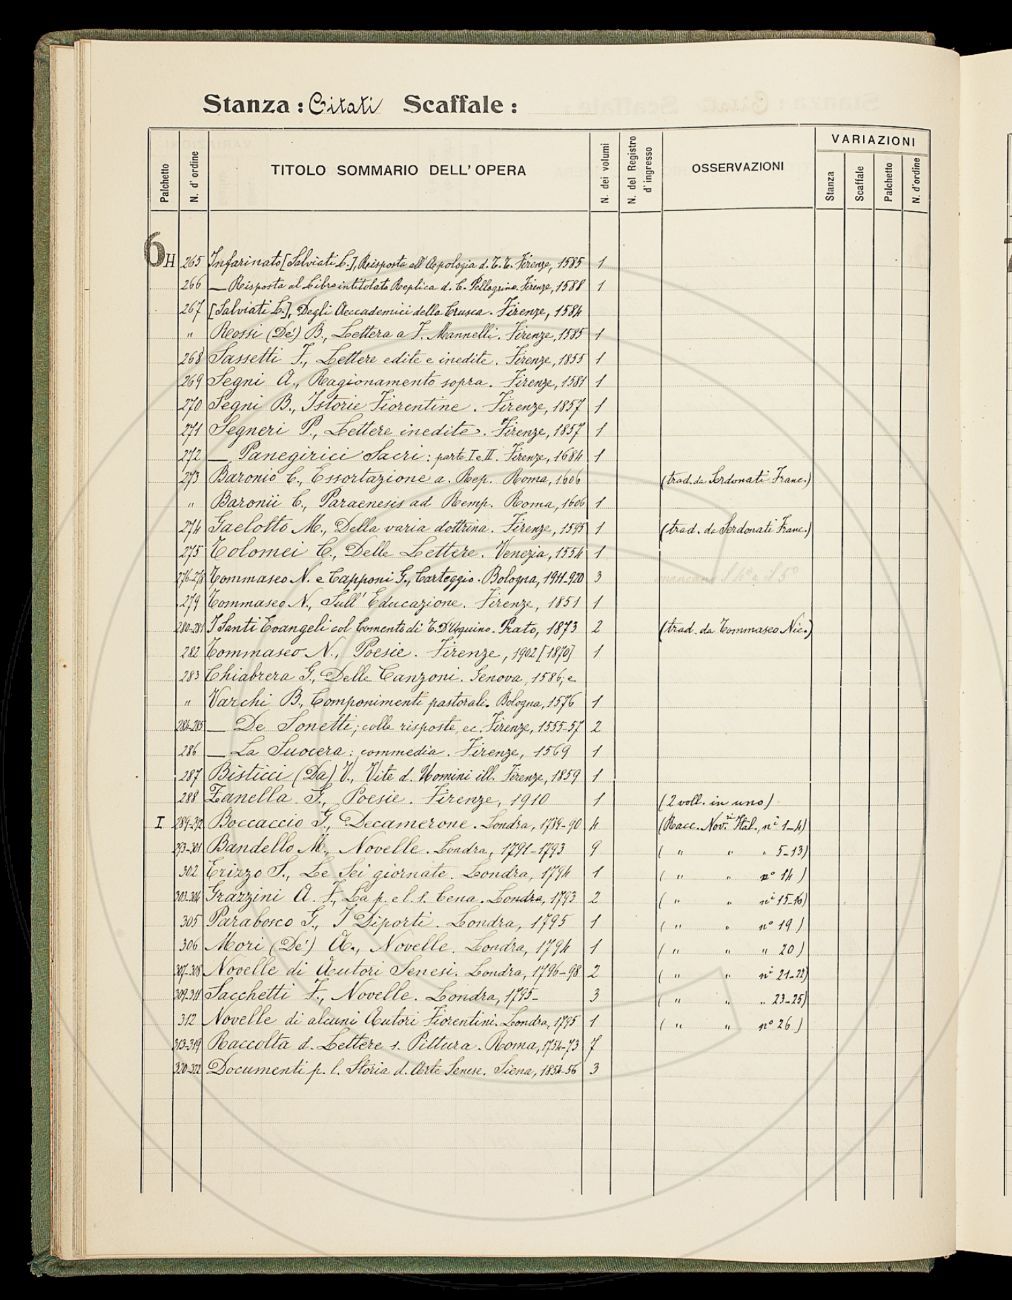 Stanza: Citati Scaffale:
Palchetto N. d'ordine TITOLO SOMMARIO DELL'OPERA N. dei volumi N. del Registro d'ingresso OSSERVAZIONI VARIAZIONI Stanza Scaffale Palchetto N. d'ordine
6 H 265 Infarinato [Salviati L.], Risposta all'Apologia d. T. T. Firenze, 1585 1
266 — Risposta al Libro intitolato Replica d. C. Pellegrino. Firenze, 1588 1
267 [Salviati L.], Degli Accademici della Crusca. Firenze, 1584
" Rossi (De') B., Lettera a F. Mannelli. Firenze, 1585 1
268 Sassetti F., Lettere edite e inedite. Firenze, 1855 1
269 Segni A., Ragionamento sopra. Firenze, 1581 1
270 Segni B., Istorie Fiorentine. Firenze, 1857 1
271 Segneri P., Lettere inedite. Firenze, 1857 1
272 — Panegirici Sacri: parte I e II. Firenze, 1684 1
273 Baronio C., Essortazione a. Rep. Roma, 1606 (trad. da Serdonati Franc.)
" Baronii C., Paraenesis ad Remp. Roma, 1606 1
274 Gaelotto M., Della varia dottrina. Firenze, 1595 1 (trad. da Serdonati Franc.)
275 Tolomei C., Delle Lettere. Venezia, 1554 1
276-278 Tommaseo N. e Capponi G., Carteggio. Bologna, 1911-920 3 mancano il 4° e il 5°
279 Tommaseo N., Sull'Educazione. Firenze, 1851 1
280-281 I Santi Evangeli col Comento di T. D'Aquino. Prato, 1873 2 (trad. da Tommaseo Nic.)
282 Tommaseo N., Poesie. Firenze, 1902 [1870] 1
283 Chiabrera G., Delle Canzoni. Genova, 1586, e
" Varchi B., Componimenti pastorali. Bologna, 1576 1
284-285 — De Sonetti; colle risposte, ec. Firenze, 1555-57 2
286 — La Suocera: commedia. Firenze, 1569 1
287 Bisticci (Da) V., Vite d. Uomini ill. Firenze, 1859 1
288 Zanella G., Poesie. Firenze, 1910 1 (2 voll. in uno)
I 289-92 Boccaccio G., Decamerone. Londra, 1789-90 4 (Racc. Nov. Ital., ni 1-4)
293-301 Bandello M., Novelle. Londra, 1791-1793 9 ( " " " 5-13)
302 Erizzo S., Le Sei giornate. Londra, 1794 1 ( " " n° 14)
303-304 Grazzini A. F., La p. e l. s. Cena. Londra, 1793 2 ( " " ni 15-16)
305 Parabosco G., I Diporti. Londra, 1795 1 ( " " n° 19)
306 Mori (De') A., Novelle. Londra, 1794 1 ( " " " 20)
307-308 Novelle di Autori Senesi. Londra, 1796-98 2 ( " " ni 21-22)
309-311 Sacchetti F., Novelle. Londra, 1795- 3 ( " " " 23-25)
312 Novelle di alcuni Autori Fiorentini. Londra, 1795 1 ( " " n° 26)
313-319 Raccolta d. Lettere s. Pittura. Roma, 1754-73 7
320-322 Documenti p. l. Storia d. Arte Senese. Siena, 1854-56 3